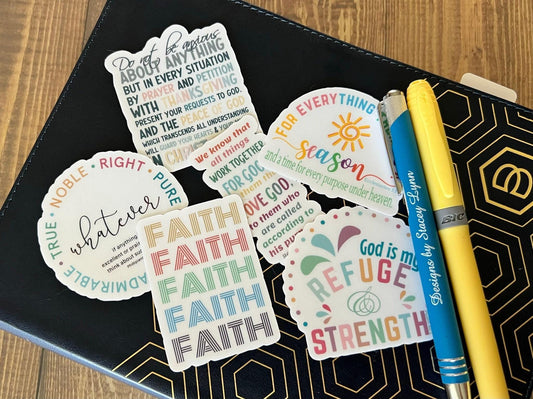 Do not be anxious
ABOUT ANYTHING
BUT IN EVERY SITUATION
BY PRAYER AND PETITION
WITH THANKSGIVING
PRESENT YOUR REQUESTS TO GOD.
AND THE PEACE OF GOD
WHICH TRANSCENDS ALL UNDERSTANDING
WILL GUARD YOUR HEARTS & YOUR
IN
FOR EVERYTHING
season
and a time for every purpose under heaven.
we know that
all things
WORK TOGETHER
FOR GOOD
LOVE GOD,
to them who
are called
according to
his
TRUE • NOBLE • RIGHT • PURE
ADMIRABLE
whatever
if anything
excellent or
think about
FAITH
FAITH
FAITH
FAITH
FAITH
God is my
REFUGE
&
STRENGTH
Designs by Stacey Lynn
BIC